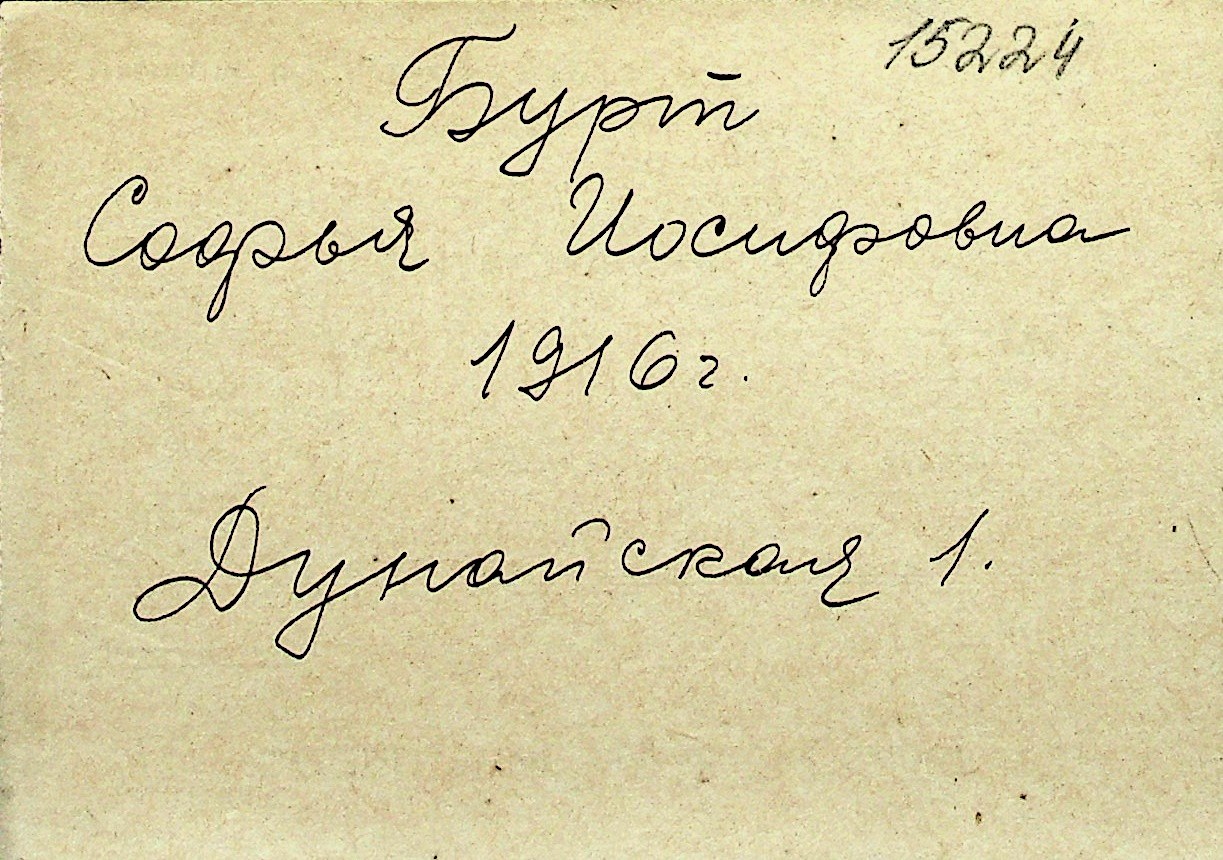 15224
Бурт
Софья Иосифовна
1916 г.
Дунайская 1.